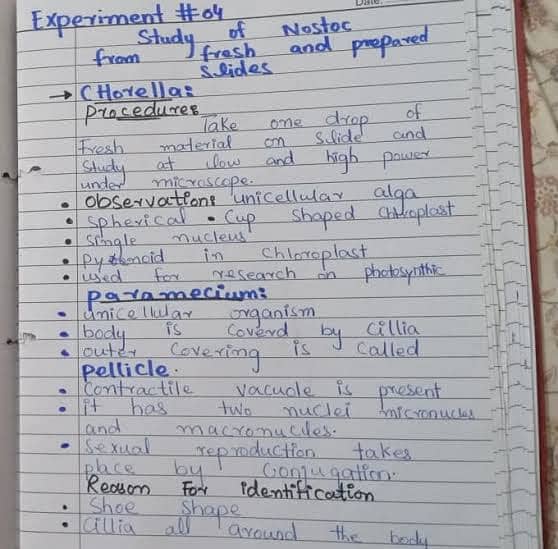 Date:
Experiment #04
Study of Nostoc
from fresh and prepared
slides
→ CHorella:
Procedures
Take one drop of
Fresh material on slide and
Study at low and high power
under microscope.
• Observation: unicellular alga
• Spherical • Cup shaped Chloroplast
• Single nucleus
• Pyrenoid in Chloroplast
• used for research on photosynthic
Paramecium:
• Unicellular organism
• body is Coverd by Cillia
• outer Covering is Called
Pellicle.
• Contractile vacuole is present
• it has two nuclei micronucles
and macronucles.
• Sexual reproduction takes
place by Conjugation.
Reason For identification
• Shoe Shape
• Cillia all around the body